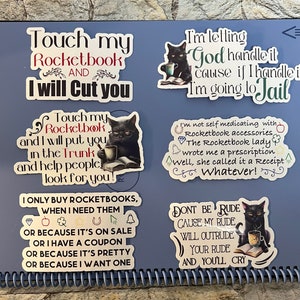 Touch my
Rocketbook
AND
I will Cut you
I'm letting
God handle it
'cause if I handle it
I'm going to Jail
Touch my
Rocketbook
and I will put you
in the Trunk
and help people
look for you!
I'm not self medicating with
Rocketbook accessories.
The Rocketbook lady
wrote me a prescription
Well, she called it a Receipt
Whatever!
I ONLY BUY ROCKETBOOKS,
WHEN I NEED THEM
OR BECAUSE IT'S ON SALE
OR I HAVE A COUPON
OR BECAUSE IT'S PRETTY
OR BECAUSE I WANT ONE
DON'T BE RUDE
CAUSE MY RUDE
WILL OUTRUDE
YOUR RUDE
AND YOU'LL CRY